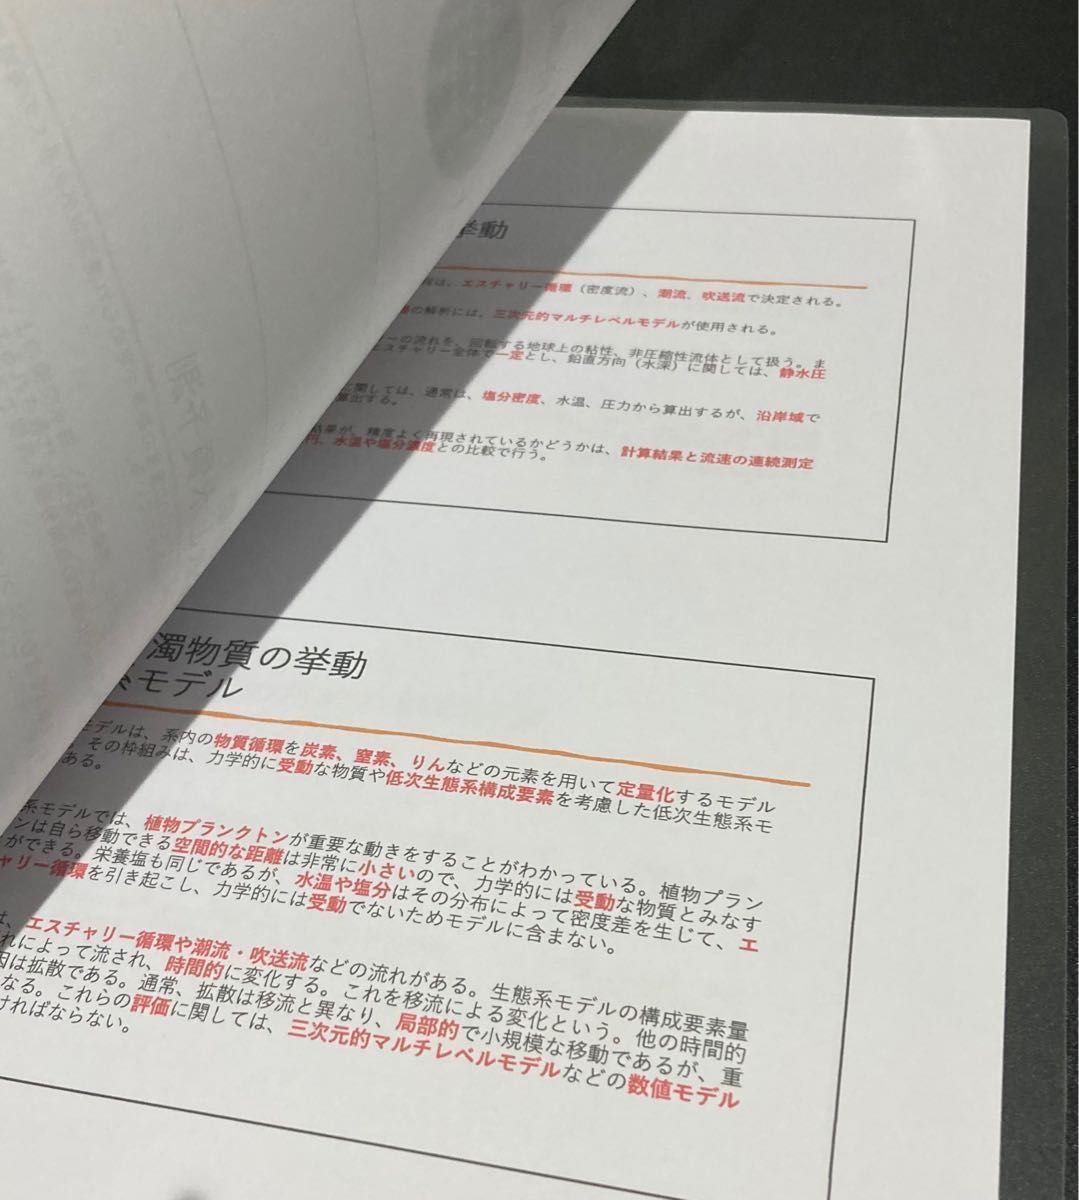 挙動
は、エスチャリー循環（密度流）、潮流、吹送流で決定される。
の解析には、三次元的マルチレベルモデルが使用される。
ーの流れを、回転する地球上の粘性、非圧縮性流体として扱う。ま
エスチャリー全体で一定とし、鉛直方向（水深）に関しては、静水圧
に関しては、通常は、塩分密度、水温、圧力から算出するが、沿岸域で
算出する。
結果が、精度よく再現されているかどうかは、計算結果と流速の連続測定
円、水温や塩分濃度との比較で行う。
濁物質の挙動
系モデル
モデルは、系内の物質循環を炭素、窒素、りんなどの元素を用いて定量化するモデル
、その枠組みは、力学的に受動な物質や低次生態系構成要素を考慮した低次生態系モ
ある。
系モデルでは、植物プランクトンが重要な動きをすることがわかっている。植物プラン
ンは自ら移動できる空間的な距離は非常に小さいので、力学的には受動な物質とみなす
ができる。栄養塩も同じであるが、水温や塩分はその分布によって密度差を生じて、エ
ャリー循環を引き起こし、力学的には受動でないためモデルに含まない。
は、エスチャリー循環や潮流・吹送流などの流れがある。生態系モデルの構成要素量
れによって流され、時間的に変化する。これを移流による変化という。他の時間的
因は拡散である。通常、拡散は移流と異なり、局部的で小規模な移動であるが、重
なる。これらの評価に関しては、三次元的マルチレベルモデルなどの数値モデル
ければならない。